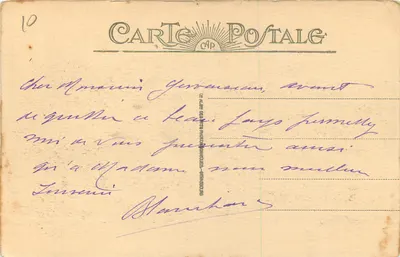 10
CARTE POSTALE
CAP
Cher Monsieur avant
de quitter ce beau pays permettez
moi de vous présenter ainsi
qu'à Madame mon meilleur
Souvenir